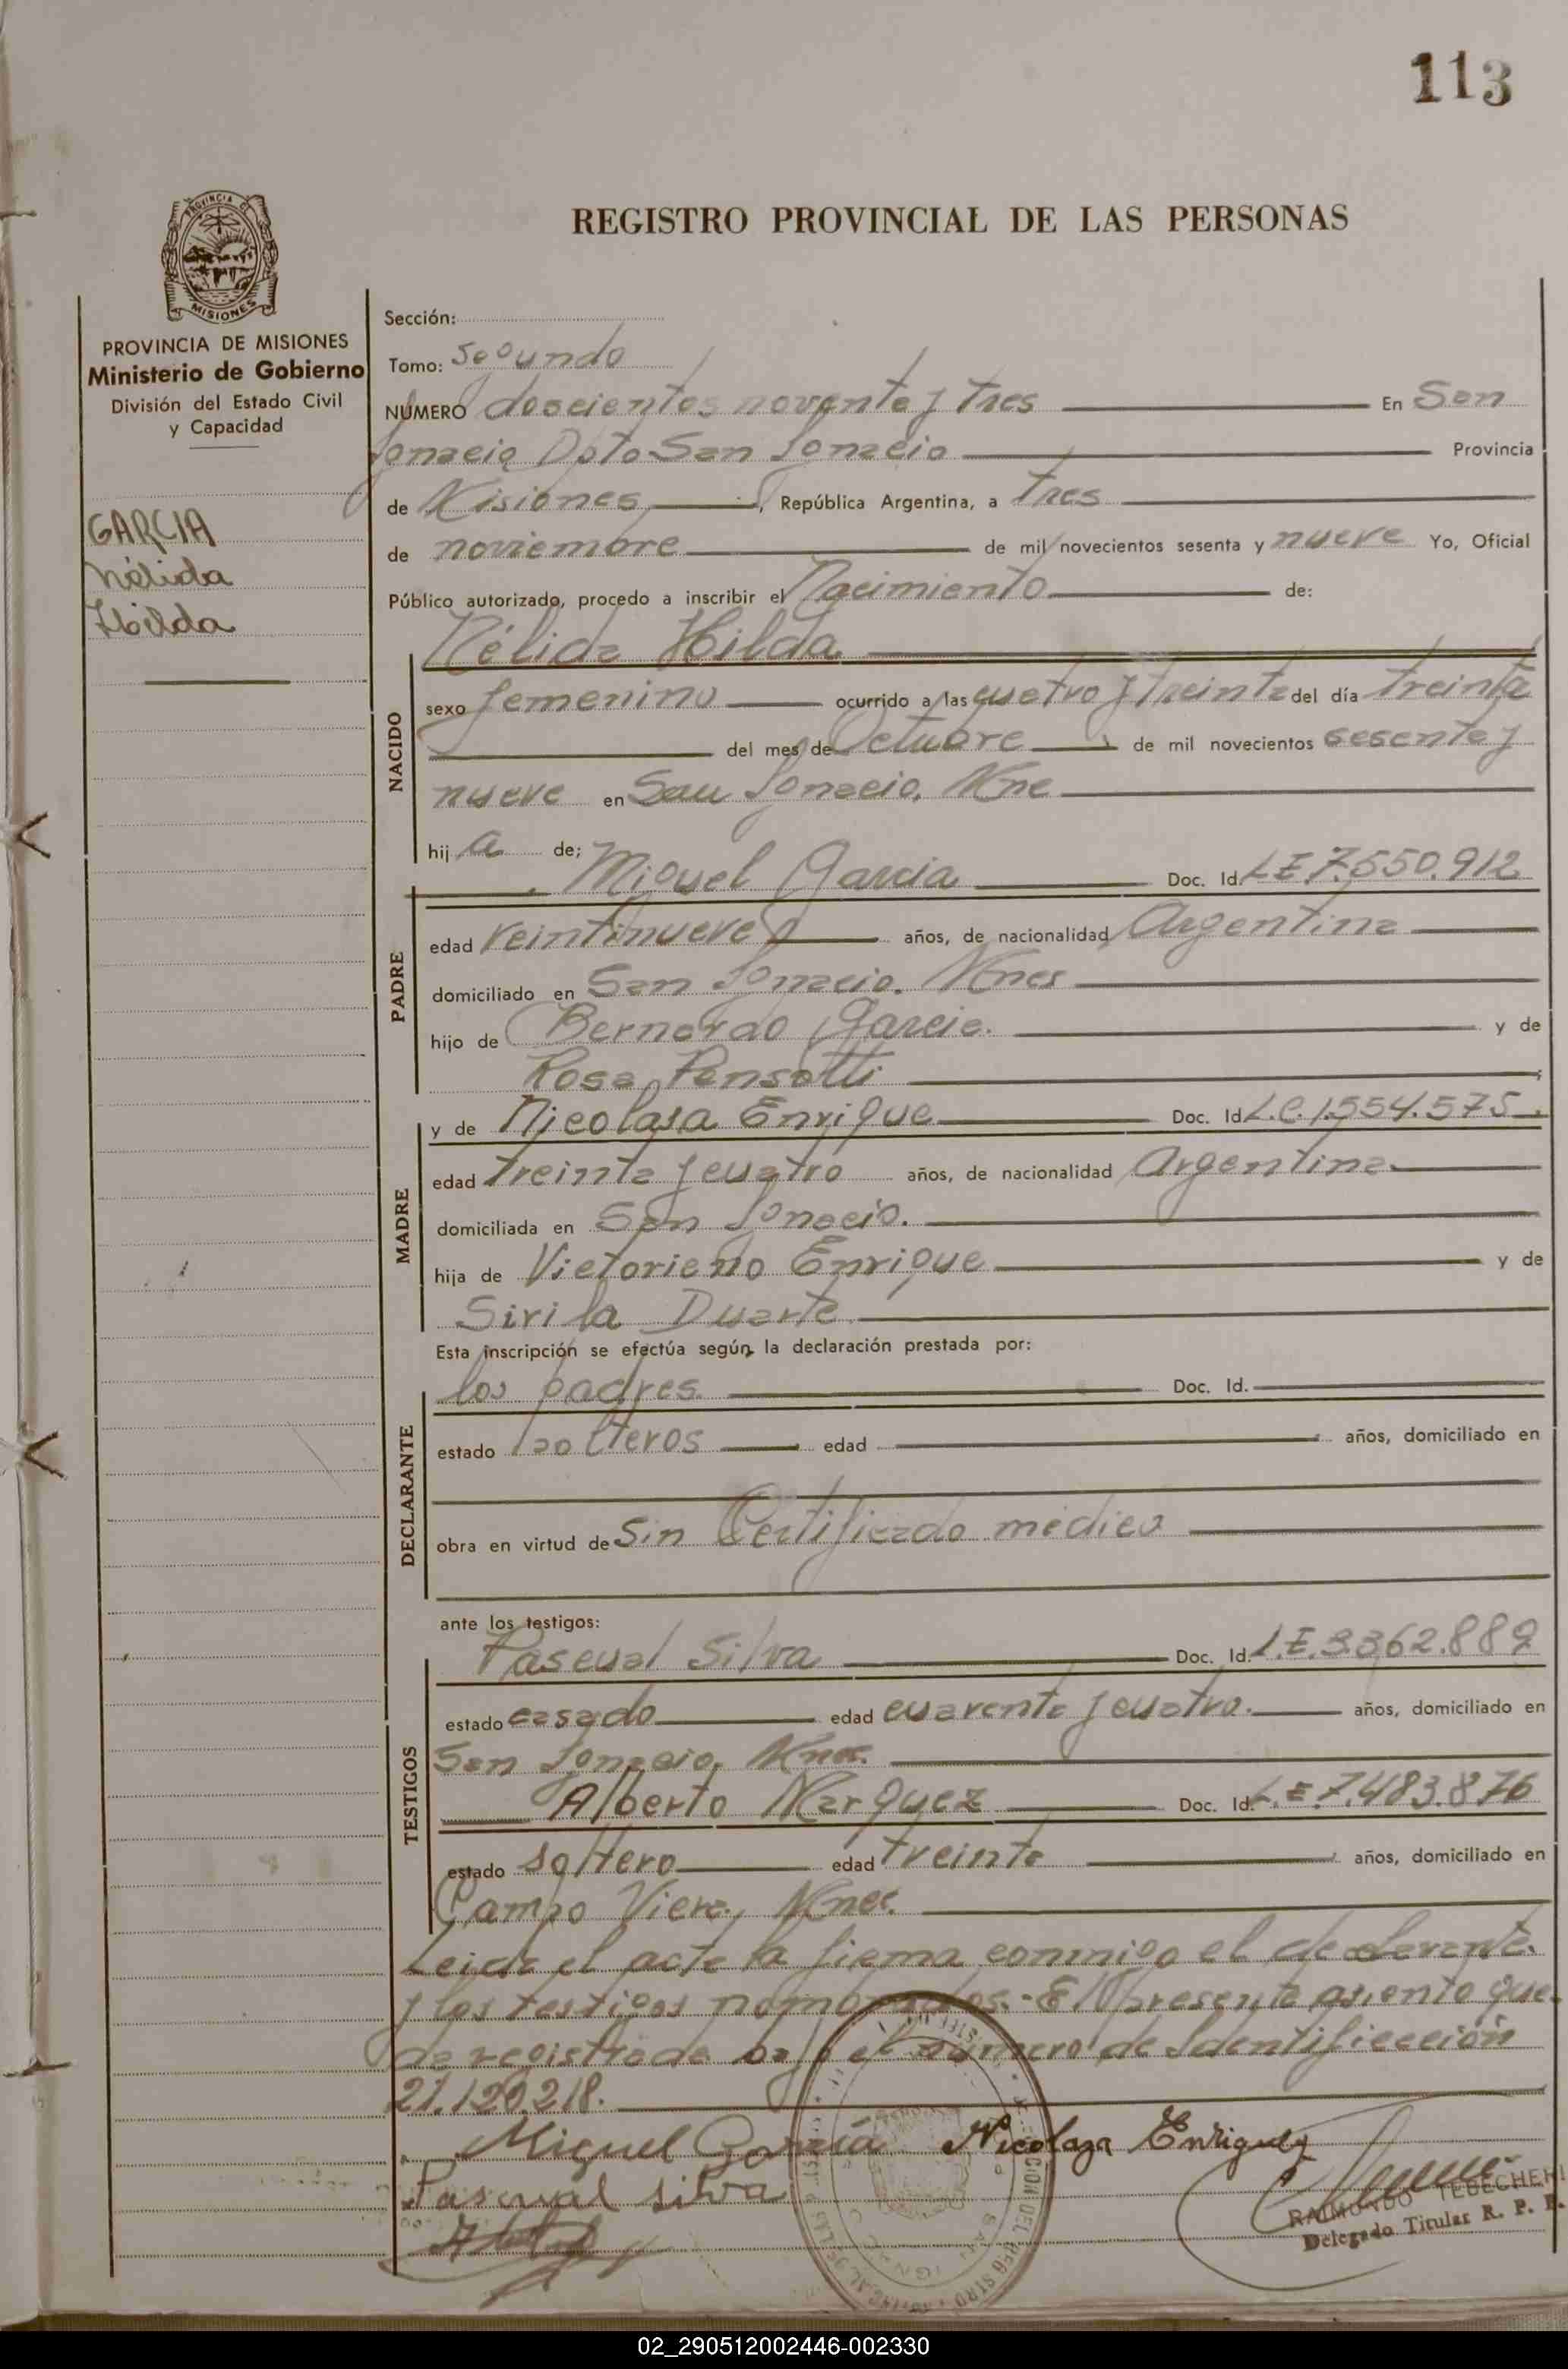 113
REGISTRO PROVINCIAL DE LAS PERSONAS
PROVINCIA DE MISIONES
Ministerio de Gobierno
División del Estado Civil
y Capacidad
GARCIA
Nélida
Hilda
Sección:
Tomo: Segundo
NUMERO doscientos noventa y tres En San
Ignacio Dpto San Ignacio Provincia
de Misiones, República Argentina, a tres
de noviembre de mil novecientos sesenta y nueve Yo, Oficial
Público autorizado, procedo a inscribir el Nacimiento de:
Nélida Hilda
NACIDO
sexo femenino ocurrido a las cuatro y treinta del día treinta
del mes de Octubre de mil novecientos sesenta y
nueve en San Ignacio, Mne
hija de;
Miguel Garcia Doc. Id. L E 7.550.912
PADRE
edad veintinueve años, de nacionalidad Argentina
domiciliado en San Ignacio. Mnes
hijo de Bernardo Garcia. y de
Rosa Pensotti
y de Nicolasa Enrique Doc. Id. L.C. 1.554.575.
MADRE
edad treinta y cuatro años, de nacionalidad Argentina
domiciliada en San Ignacio.
hija de Victoriano Enrique y de
Sirila Duarte.
Esta inscripción se efectúa según la declaración prestada por:
los padres. Doc. Id.
DECLARANTE
estado solteros edad años, domiciliado en
obra en virtud de sin Certificado médico
ante los testigos:
Pascual Silva Doc. Id. L.E. 3.362.889
TESTIGOS
estado casado edad cuarenta y cuatro. años, domiciliado en
San Ignacio, Mnes.
Alberto Marquez Doc. Id. L.E. 7.483.876
estado soltero edad treinta años, domiciliado en
Campo Viera, Mnes.
Leida el acta la firma conmigo el declarante.
y los testigos nombrados.- El presente asiento que
da registrado bajo el número de Identificación
21.120.218.
Miguel García Nicolaza Enriquez
Pascual silva
RAIMUNDO TEBECHERI
Delegado Titular R. P. P.
02_290512002446-002330